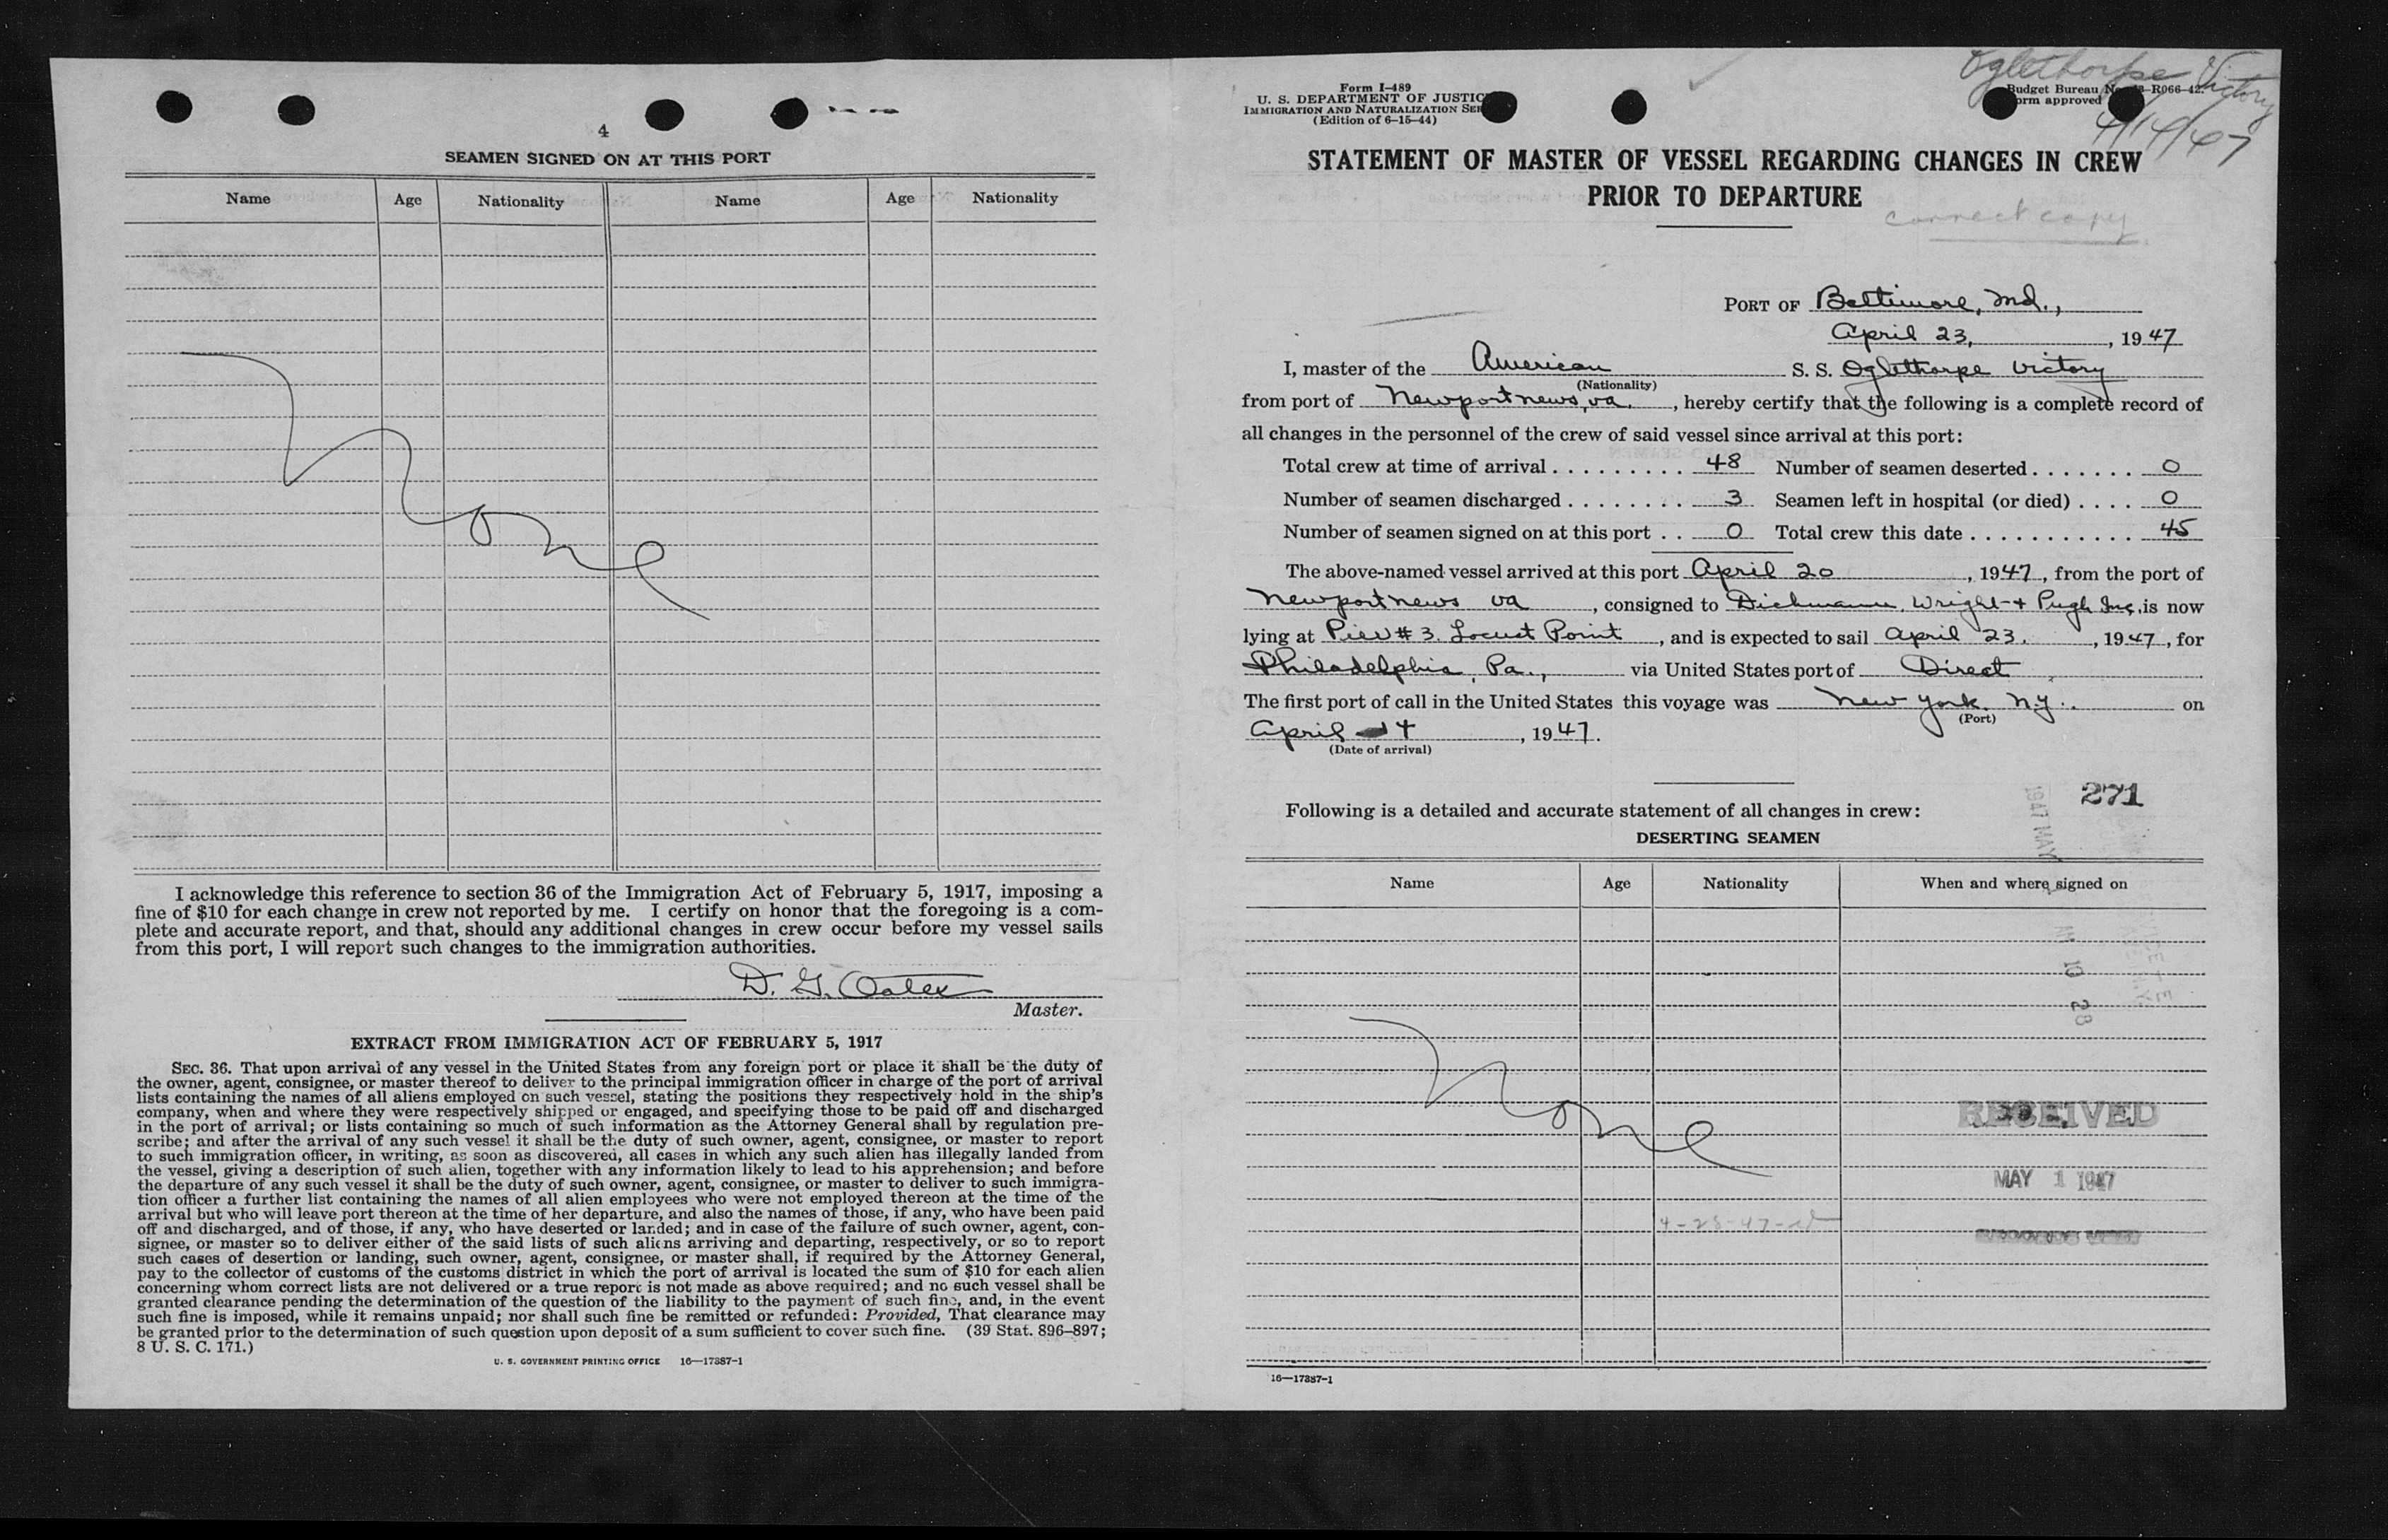 4
SEAMEN SIGNED ON AT THIS PORT
Name Age Nationality Name Age Nationality
None
I acknowledge this reference to section 36 of the Immigration Act of February 5, 1917, imposing a
fine of $10 for each change in crew not reported by me. I certify on honor that the foregoing is a com-
plete and accurate report, and that, should any additional changes in crew occur before my vessel sails
from this port, I will report such changes to the immigration authorities.
D. G. Oates
Master.
EXTRACT FROM IMMIGRATION ACT OF FEBRUARY 5, 1917
SEC. 36. That upon arrival of any vessel in the United States from any foreign port or place it shall be the duty of
the owner, agent, consignee, or master thereof to deliver to the principal immigration officer in charge of the port of arrival
lists containing the names of all aliens employed on such vessel, stating the positions they respectively hold in the ship's
company, when and where they were respectively shipped or engaged, and specifying those to be paid off and discharged
in the port of arrival; or lists containing so much of such information as the Attorney General shall by regulation pre-
scribe; and after the arrival of any such vessel it shall be the duty of such owner, agent, consignee, or master to report
to such immigration officer, in writing, as soon as discovered, all cases in which any such alien has illegally landed from
the vessel, giving a description of such alien, together with any information likely to lead to his apprehension; and before
the departure of any such vessel it shall be the duty of such owner, agent, consignee, or master to deliver to such immigra-
tion officer a further list containing the names of all alien employees who were not employed thereon at the time of the
arrival but who will leave port thereon at the time of her departure, and also the names of those, if any, who have been paid
off and discharged, and of those, if any, who have deserted or landed; and in case of the failure of such owner, agent, con-
signee, or master so to deliver either of the said lists of such aliens arriving and departing, respectively, or so to report
such cases of desertion or landing, such owner, agent, consignee, or master shall, if required by the Attorney General,
pay to the collector of customs of the customs district in which the port of arrival is located the sum of $10 for each alien
concerning whom correct lists are not delivered or a true report is not made as above required; and no such vessel shall be
granted clearance pending the determination of the question of the liability to the payment of such fine, and, in the event
such fine is imposed, while it remains unpaid; nor shall such fine be remitted or refunded: Provided, That clearance may
be granted prior to the determination of such question upon deposit of a sum sufficient to cover such fine. (39 Stat. 896–897;
8 U. S. C. 171.)
U. S. GOVERNMENT PRINTING OFFICE 16—17387-1
Oglethorpe Victory
4/14/47
Form I-489
U. S. DEPARTMENT OF JUSTIC
IMMIGRATION AND NATURALIZATION SER
(Edition of 6-15-44)
Budget Bureau N -R066-42.
orm approved
STATEMENT OF MASTER OF VESSEL REGARDING CHANGES IN CREW
PRIOR TO DEPARTURE
correct copy
PORT OF Baltimore, Md.,
April 23, , 1947
I, master of the American S. S. Oglethorpe Victory
(Nationality)
from port of Newport news, va. , hereby certify that the following is a complete record of
all changes in the personnel of the crew of said vessel since arrival at this port:
Total crew at time of arrival . . . . . . . . . 48 Number of seamen deserted . . . . . . . 0
Number of seamen discharged . . . . . . . . 3 Seamen left in hospital (or died) . . . . 0
Number of seamen signed on at this port . . 0 Total crew this date . . . . . . . . . . . 45
The above-named vessel arrived at this port April 20 , 1947, from the port of
Newport news va , consigned to Dichmann, Wright + Pugh Inc, is now
lying at Pier # 3. Locust Point , and is expected to sail April 23. , 1947, for
Philadelphia, Pa., via United States port of Direct
The first port of call in the United States this voyage was New York. N.Y. on
(Port)
April 4 , 1947.
(Date of arrival)
271
Following is a detailed and accurate statement of all changes in crew:
DESERTING SEAMEN
Name Age Nationality When and where signed on
1947 MAY
AM 10 28
None
RECEIVED
MAY 1 1947
4-28-47
16—17387-1